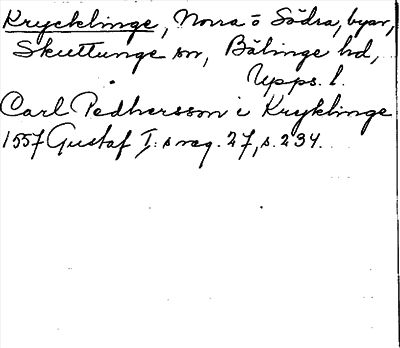 Krycklinge, Norra o Södra, byar,
Skuttunge sn, Bälinge hd,
Upps. l.
Carl Pedhersson i Kryklinge
1557 Gustaf I:s reg. 27, s. 234.